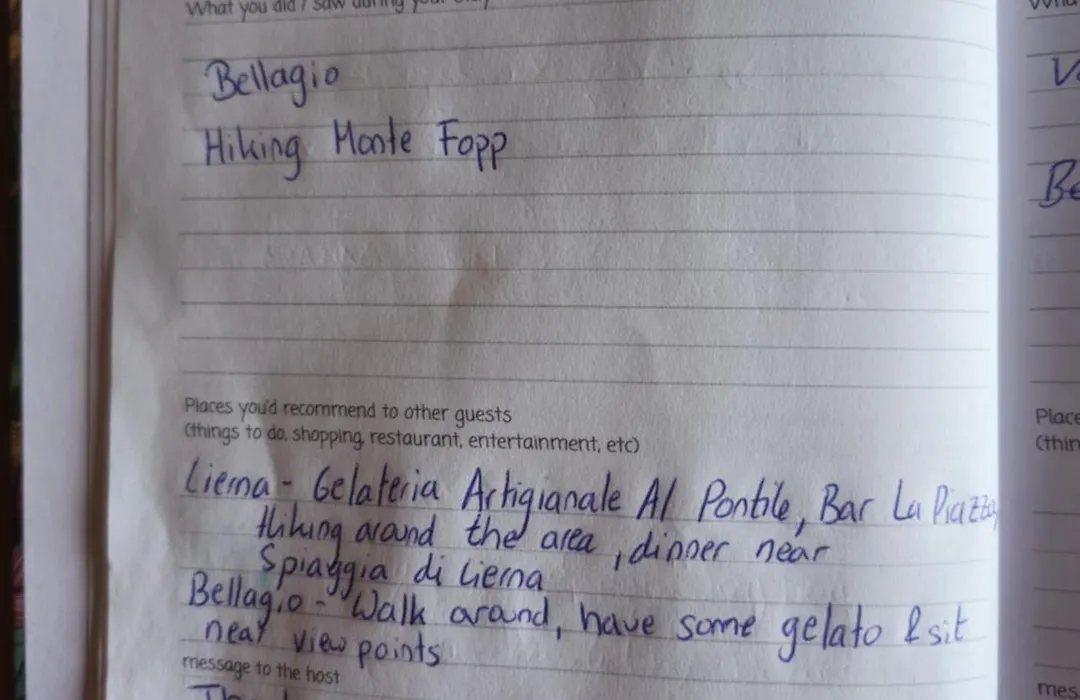 What you did / saw during your
Bellagio
Hiking Monte Fopp
Places you'd recommend to other guests
(things to do, shopping, restaurant, entertainment, etc)
Lierna - Gelateria Artigianale Al Pontile, Bar La Piazza,
Hiking around the area, dinner near
Spiaggia di Lierna
Bellagio - Walk around, have some gelato & sit
near view points
message to the host
Place
(thin
mes